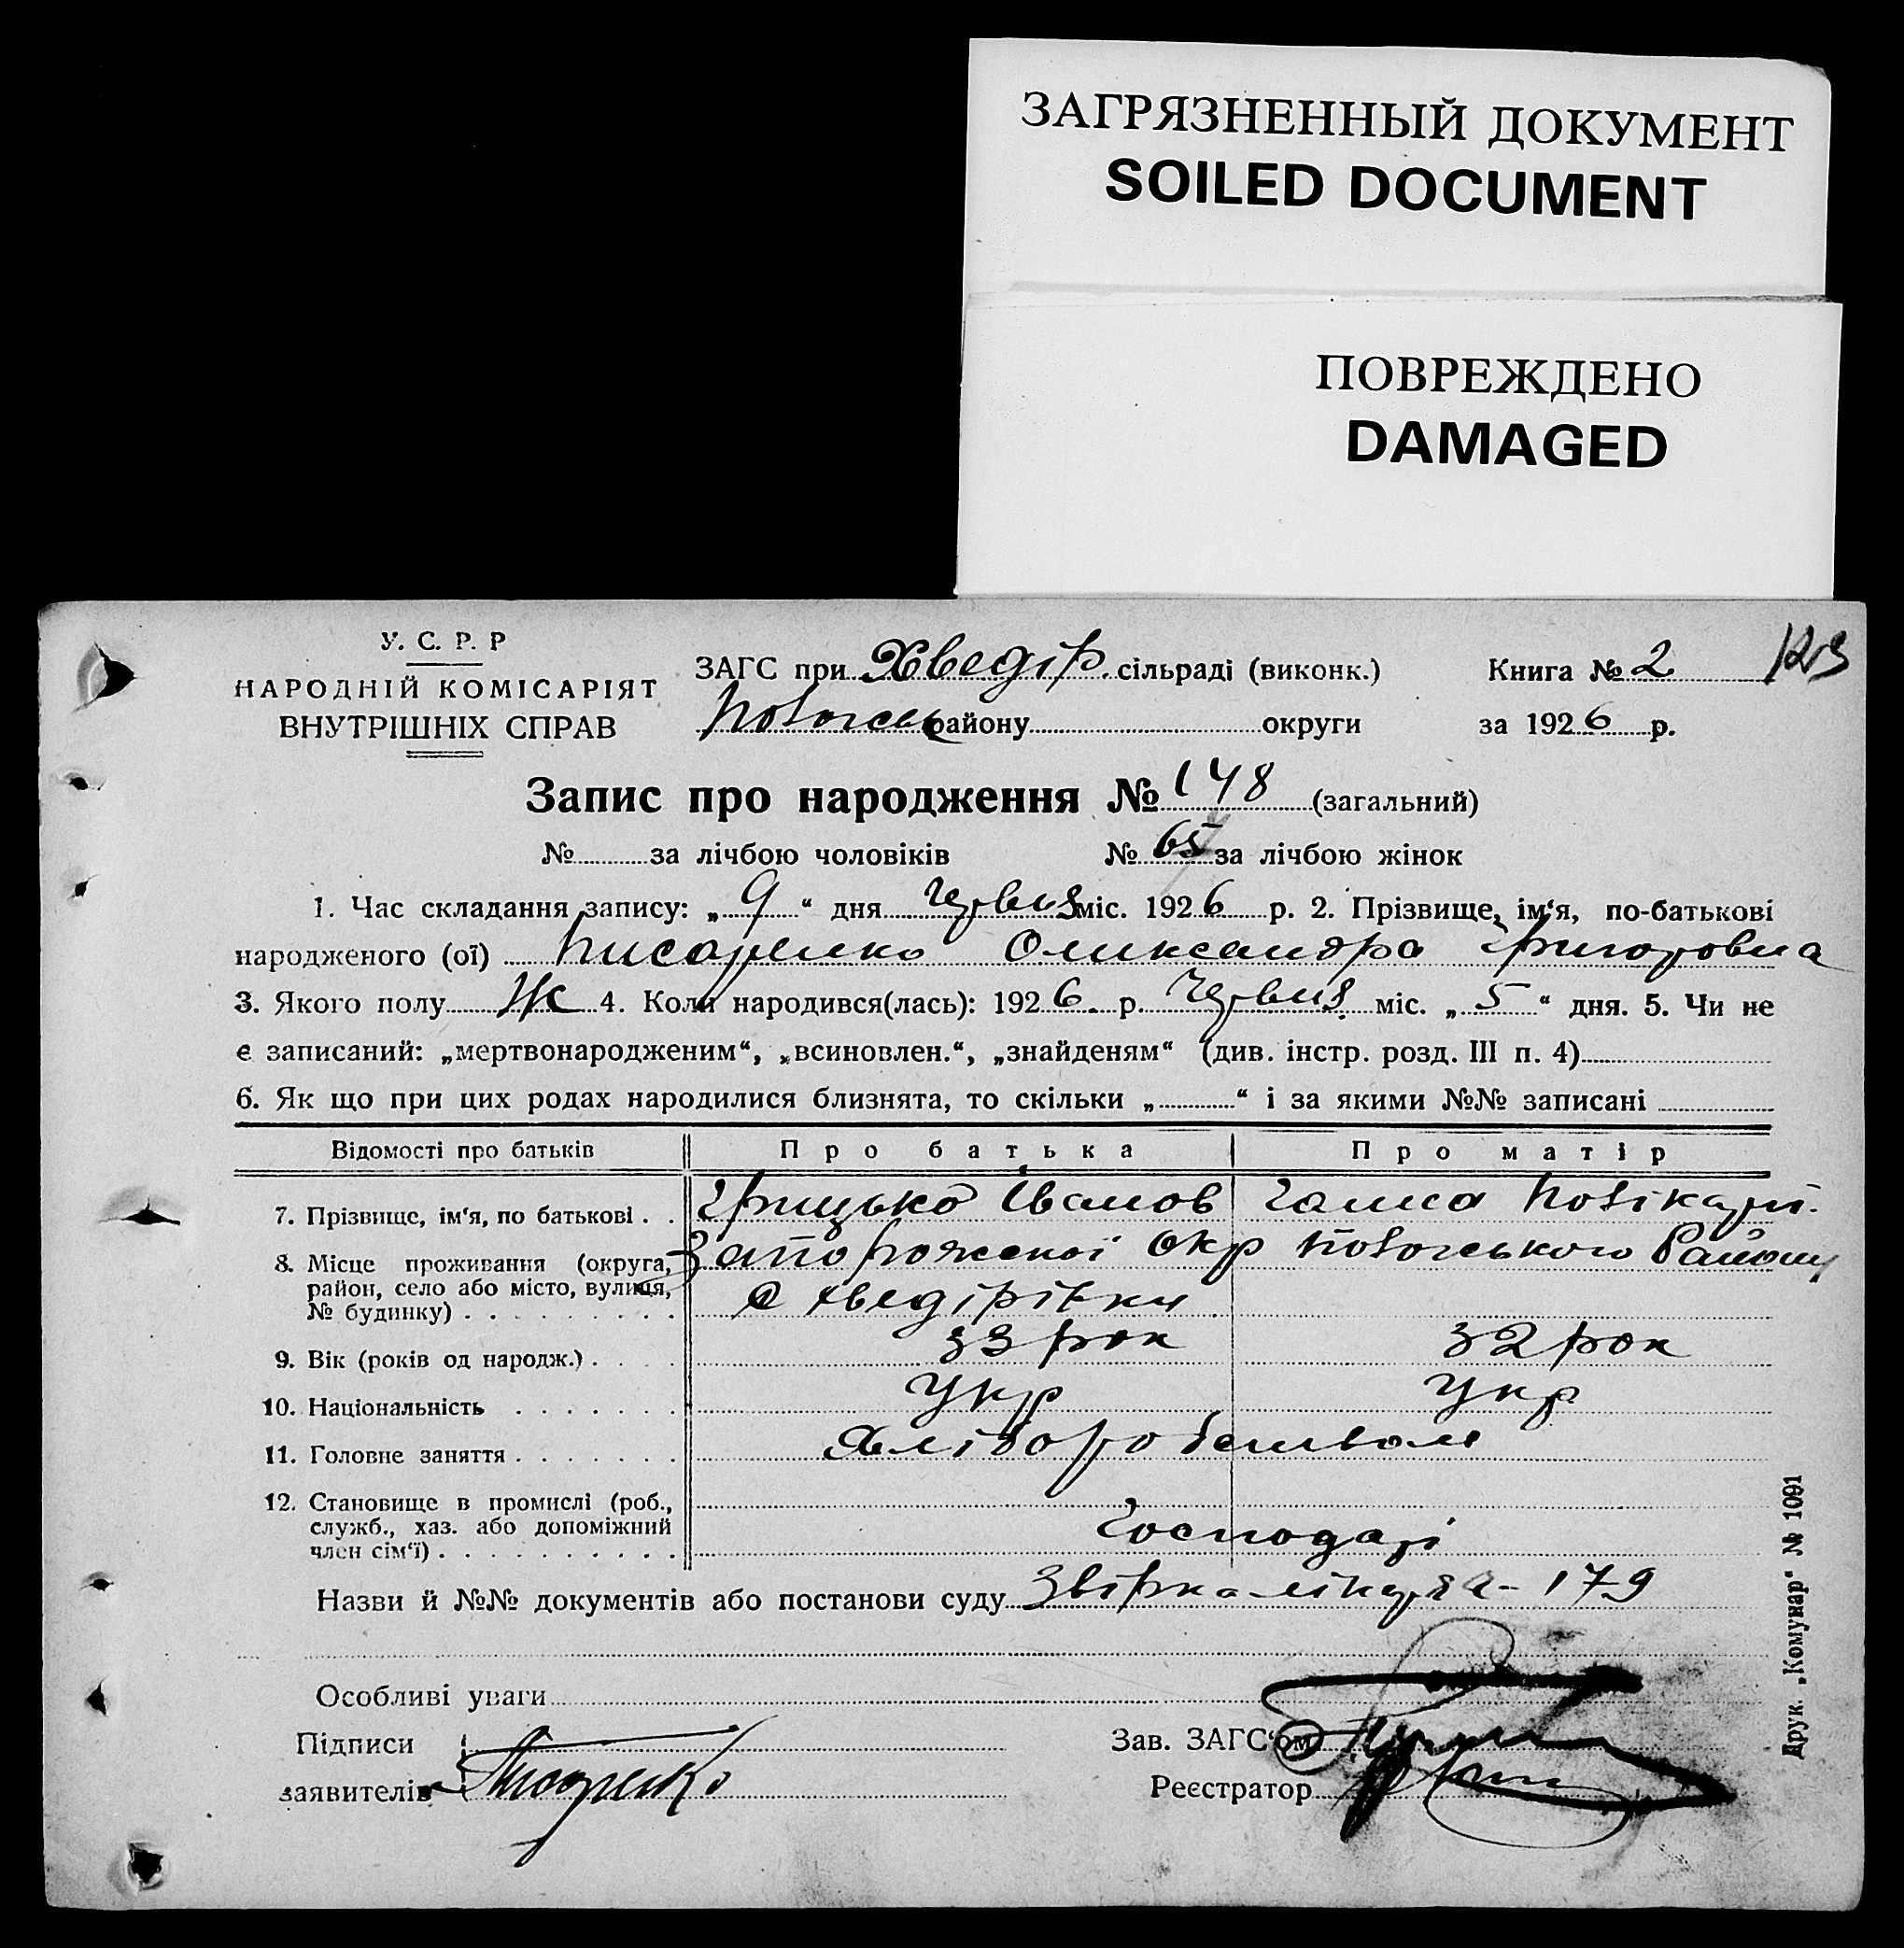 ЗАГРЯЗНЕННЫЙ ДОКУМЕНТ
SOILED DOCUMENT
ПОВРЕЖДЕНО
DAMAGED
У. С. Р. Р
НАРОДНІЙ КОМІСАРІЯТ
ВНУТРІШНІХ СПРАВ
ЗАГС при Хведір. сільраді (виконк.)
району округи
Книга № 2
за 1926 р.
Запис про народження № 148 (загальний)
№ за лічбою чоловіків № 65 за лічбою жінок
1. Час складання запису: „ 9 “ дня Червня міс. 1926 р. 2. Прізвище, ім‘я, по-батькові
народженого (ої) Писаренко Оликсандра Григоровна
3. Якого полу Ж 4. Коли народився(лась): 1926 р. Червня міс. „ 5 “ дня. 5. Чи не
є записаний: „мертвонародженим“, „всиновлен.“, „знайденям“ (див. інстр. розд. III п. 4)
6. Як що при цих родах народилися близнята, то скільки „ “ і за якими №№ записані
Відомості про батьків Про батька Про матір
7. Прізвище, ім‘я, по батькові . . Грицько Іванов Ганна
8. Місце проживання (округа, район, село або місто, вулиця, № будинку) . Запорожської Окр Району
с Хведірівки
9. Вік (років од народж.) . 33 рок 32 рок
10. Національність . Укр Укр
11. Головне заняття . Хліборобством
12. Становище в промислі (роб., служб., хаз. або допоміжний член сім‘ї) . Господарі
Назви й №№ документів або постанови суду Звірка лікаря - 179
Особливі уваги
Підписи
заявителів Писаренко
Зав. ЗАГС‘ом
Реєстратор
Друк. „Комунар“ № 1091